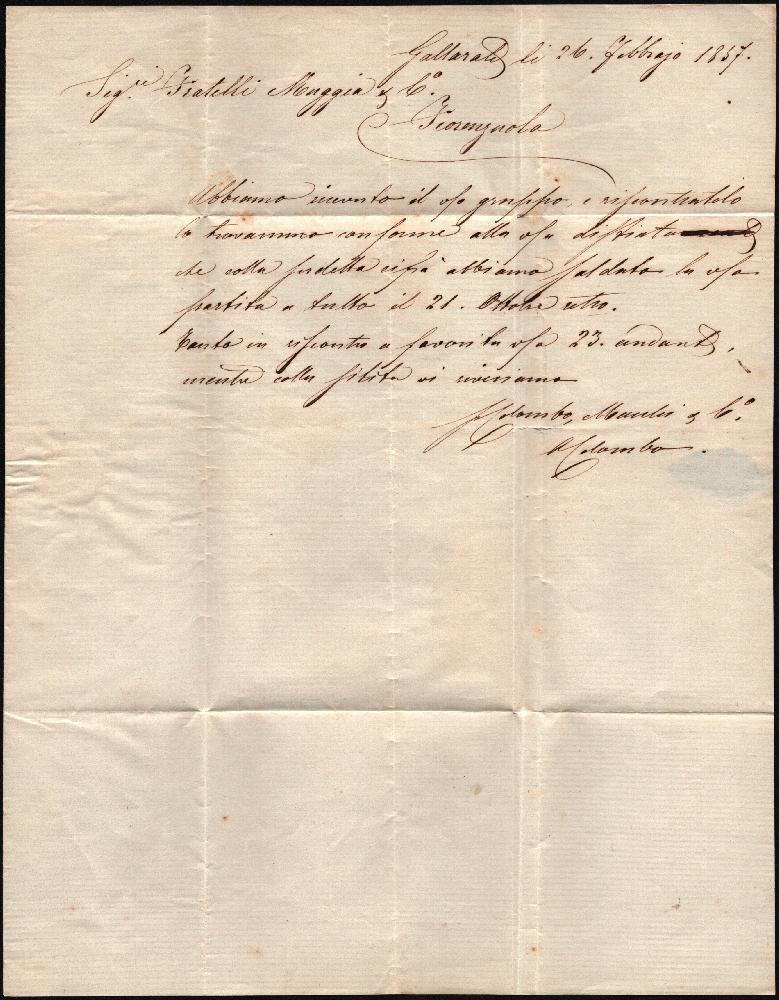 Gallarate li 26. Febbrajo 1857.
Sig.ri Fratelli Muggia & C.o
Fiorenzuola
Abbiamo ricevuto il vso gruppo, e riscontratolo
lo trovammo conforme alla vsa distinta
che colla suddetta cifra abbiamo saldato la vsa
partita a tutto il 21. Ottobre
Tanto in riscontro a favorita vsa 23. andante,
mentre colla solita vi riveriamo
Colombo, & C.o
Colombo.